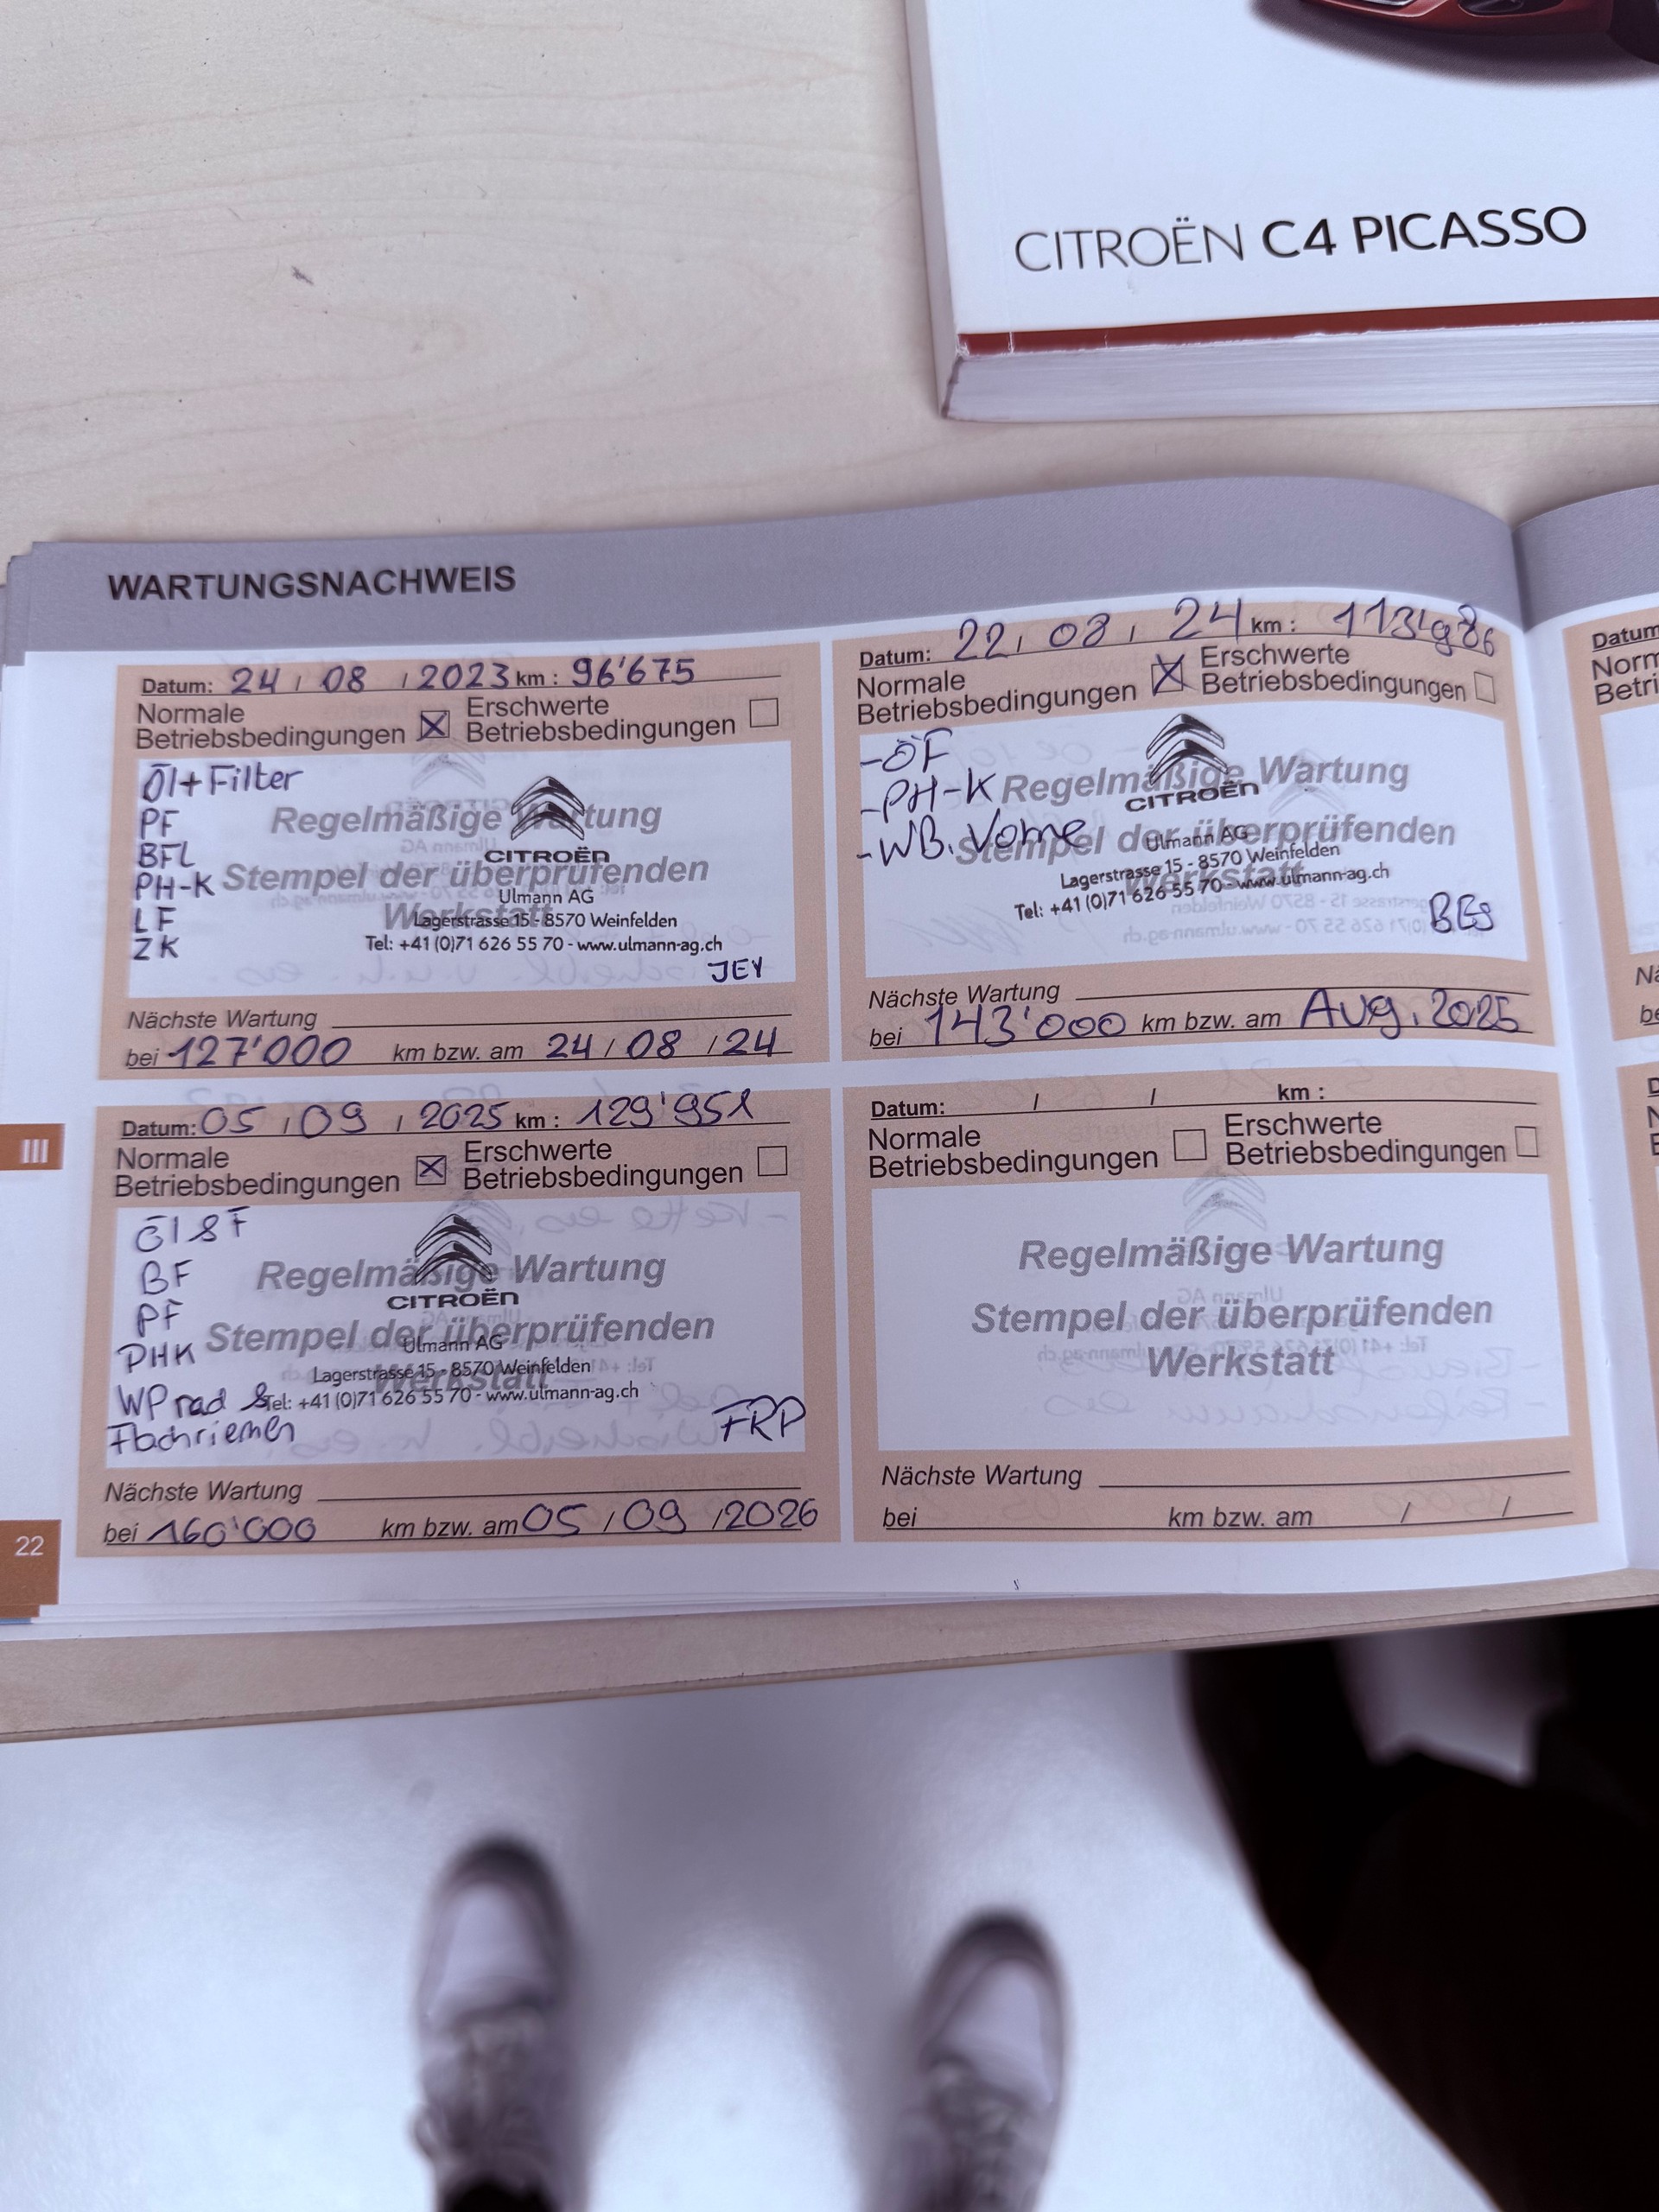 CITROËN C4 PICASSO
WARTUNGSNACHWEIS
Datum: 24 / 08 / 2023 km : 96'675
Normale
Betriebsbedingungen ☒ Erschwerte
Betriebsbedingungen ☐
Öl+Filter
PF
BFL
PH-K
LF
ZK
Regelmäßige Wartung
Stempel der überprüfenden
Werkstatt
CITROËN
Ulmann AG
Lagerstrasse 15 - 8570 Weinfelden
Tel: +41 (0)71 626 55 70 - www.ulmann-ag.ch
JEY
Nächste Wartung
bei 127'000 km bzw. am 24 / 08 / 24
Datum: 22 / 08 / 24 km : 113'986
Normale
Betriebsbedingungen ☒ Erschwerte
Betriebsbedingungen ☐
-ÖF
-PH-K
-WB. Vorne
Regelmäßige Wartung
Stempel der überprüfenden
Werkstatt
CITROËN
Ulmann AG
Lagerstrasse 15 - 8570 Weinfelden
Tel: +41 (0)71 626 55 70 - www.ulmann-ag.ch
Nächste Wartung
bei 143'000 km bzw. am Aug. 2025
Datum: 05 / 09 / 2025 km : 129'951
Normale
Betriebsbedingungen ☒ Erschwerte
Betriebsbedingungen ☐
Öl & F
BF
PF
PHK
WP rad &
Flachriemen
Regelmäßige Wartung
Stempel der überprüfenden
Werkstatt
CITROËN
Ulmann AG
Lagerstrasse 15 - 8570 Weinfelden
Tel: +41 (0)71 626 55 70 - www.ulmann-ag.ch
FRP
Nächste Wartung
bei 160'000 km bzw. am 05 / 09 / 2026
Datum: / / km :
Normale
Betriebsbedingungen ☐ Erschwerte
Betriebsbedingungen ☐
Regelmäßige Wartung
Stempel der überprüfenden
Werkstatt
Nächste Wartung
bei km bzw. am / /
III
22